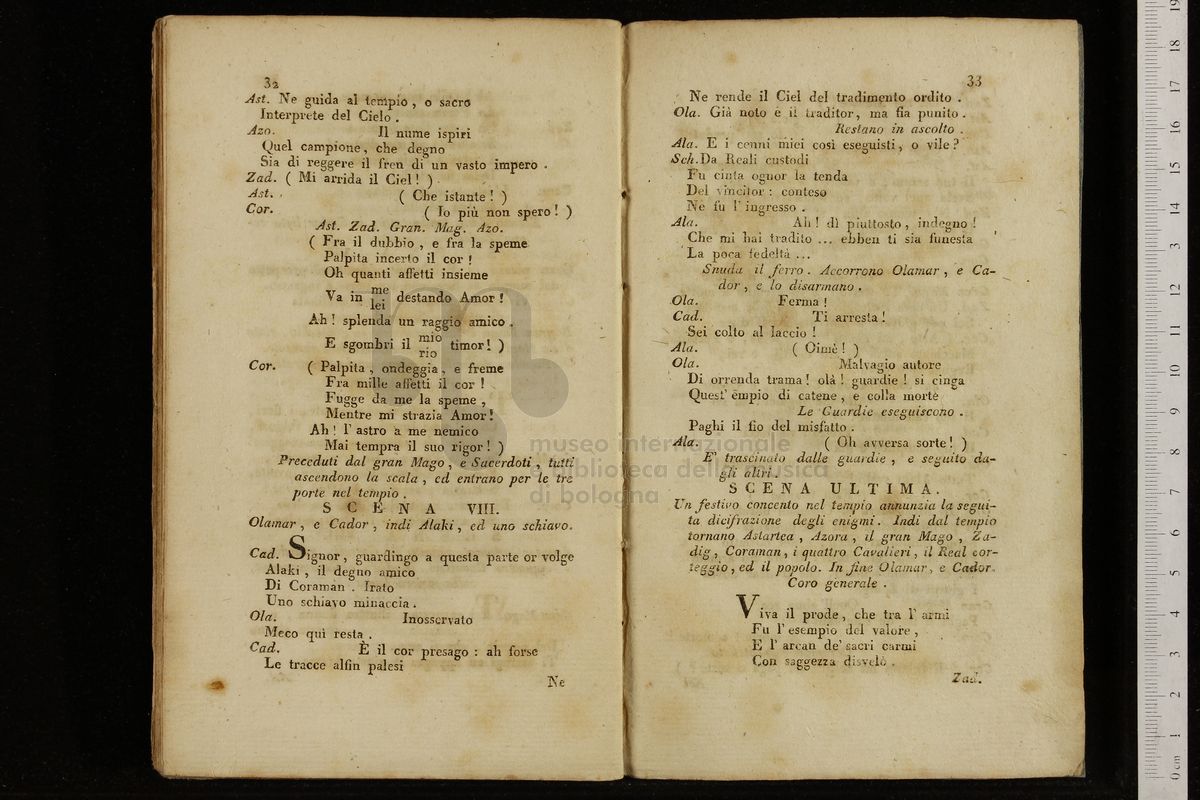 32
Ast. Ne guida al tempio , o sacro
Interprete del Cielo .
Azo. Il nume ispiri
Quel campione, che degno
Sia di reggere il fren di un vasto impero .
Zad. ( Mi arrida il Ciel! )
Ast. ( Che istante ! )
Cor. ( Io più non spero ! )
Ast. Zad. Gran. Mag. Azo.
( Fra il dubbio , e fra la speme
Palpita incerto il cor !
Oh quanti affetti insieme
Va in me destando Amor !
lei
Ah ! splenda un raggio amico .
E sgombri il mio timor! )
rio
Cor. ( Palpita , ondeggia , e freme
Fra mille affetti il cor !
Fugge da me la speme ,
Mentre mi strazia Amor!
Ah ! l' astro a me nemico
Mai tempra il suo rigor! )
Preceduti dal gran Mago , e Sacerdoti , tutti
ascendono la scala , ed entrano per le tre
porte nel tempio .
SCENA VIII.
Olamar , e Cador , indi Alaki , ed uno schiavo.
Cad. Signor , guardingo a questa parte or volge
Alaki , il degno amico
Di Coraman . Irato
Uno schiavo minaccia .
Ola. Inosservato
Meco quì resta .
Cad. È il cor presago : ah forse
Le tracce alfin palesi
Ne
33
Ne rende il Ciel del tradimento ordito .
Ola. Già noto è il traditor, ma fia punito .
Restano in ascolto .
Ala. E i cenni miei così eseguisti, o vile ?
Sch. Da Reali custodi
Fu cinta ognor la tenda
Del vincitor : conteso
Ne fu l' ingresso .
Ala. Ah ! dì piuttosto , indegno !
Che mi hai tradito ... ebben ti sia funesta
La poca fedeltà ...
Snuda il ferro . Accorrono Olamar , e Ca-
dor , e lo disarmano .
Ola. Ferma !
Cad. Ti arresta !
Sei colto al laccio !
Ala. ( Oimè ! )
Ola. Malvagio autore
Di orrenda trama ! olà ! guardie ! si cinga
Quest' empio di catene , e colla morte
Le Guardie eseguiscono .
Paghi il fio del misfatto .
Ala. ( Oh avversa sorte! )
E' trascinato dalle guardie , e seguito da-
gli altri .
SCENA ULTIMA.
Un festivo concento nel tempio annunzia la segui-
ta dicifrazione degli enigmi. Indi dal tempio
tornano Astartea , Azora , il gran Mago , Za-
dig , Coraman , i quattro Cavalieri, il Real cor-
teggio , ed il popolo. In fine Olamar, e Cador.
Coro generale .
Viva il prode, che tra l' armi
Fu l' esempio del valore ,
E l' arcan de' sacri carmi
Con saggezza disvelò .
Zad.
museo internazionale
e biblioteca della musica
di bologna
0 cm 1 2 3 4 5 6 7 8 9 10 11 12 13 14 15 16 17 18 19